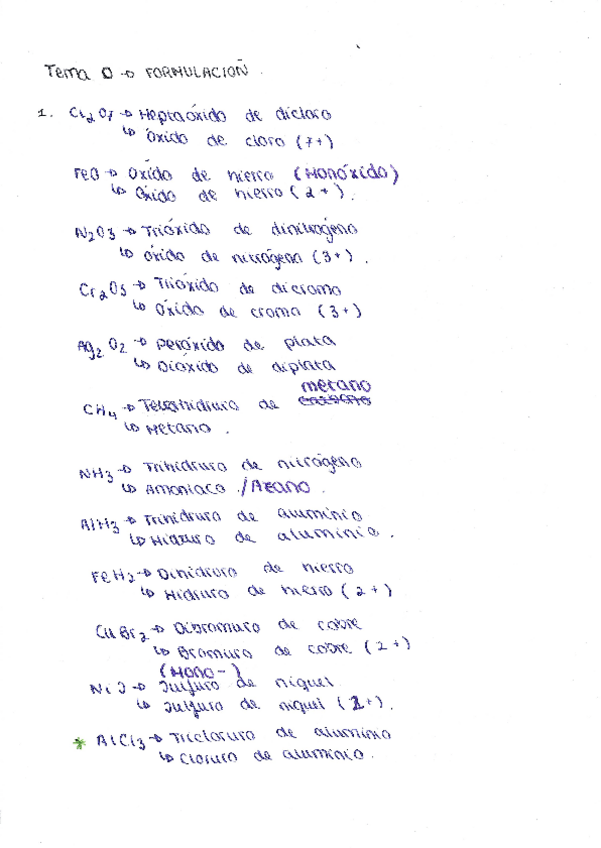 Tema 0 → FORMULACIÓN
1. Cl2O7 → Heptaóxido de dicloro
↳ Óxido de cloro (7+)
FeO → Óxido de hierro (Monóxido)
↳ Óxido de hierro (2+).
N2O3 → Trióxido de dinitrógeno
↳ óxido de nitrógeno (3+).
Cr2O3 → Trióxido de dicromo
↳ óxido de cromo (3+)
Ag2O2 → peróxido de plata
↳ Dióxido de diplata
metano
CH4 → Tetrahidruro de
↳ Metano.
NH3 → Trihidruro de nitrógeno
↳ Amoniaco / Azano.
AlH3 → Trihidruro de aluminio
↳ Hidruro de aluminio.
FeH2 → Dihidruro de hierro
↳ Hidruro de hierro (2+)
CuBr2 → Dibromuro de cobre
↳ Bromuro de cobre (2+)
(Mono-)
Ni → Sulfuro de níquel
↳ Sulfuro de níquel (2+).
* AlCl3 → Tricloruro de aluminio
↳ Cloruro de aluminio.